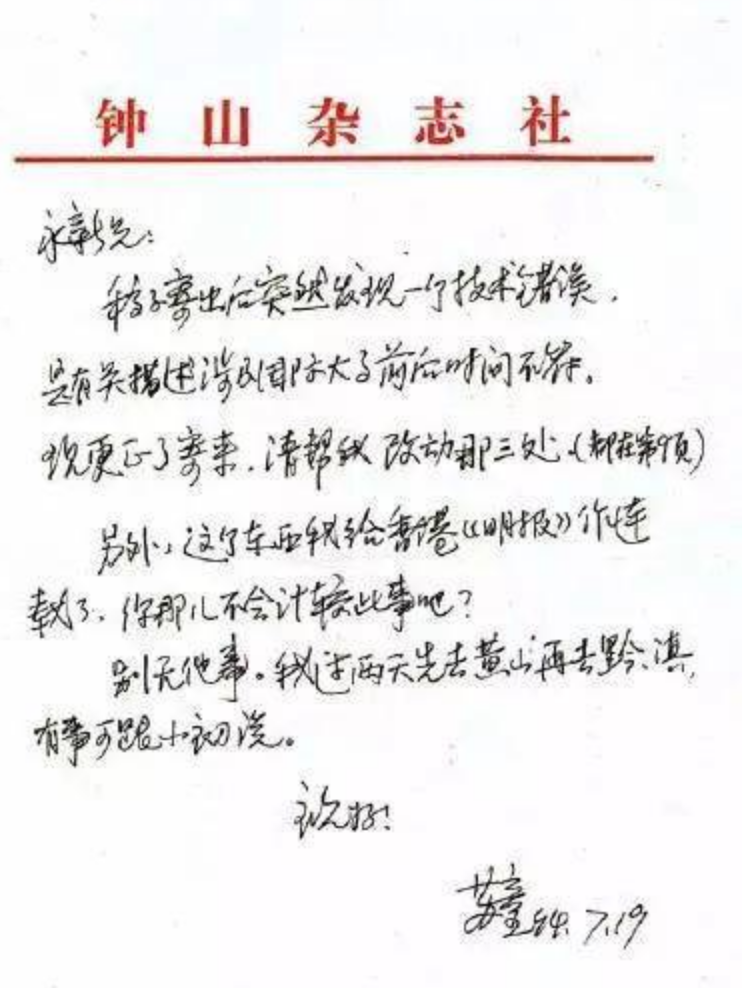 钟山杂志社
永新兄:
稿子寄出后突然发现一个技术错误,
是有关描述涉及国际大事前后时间不符。
现更正了寄来,请帮我改动那三处。(都在第9页)
另外,这个东西我给香港《明报》作连
载了,你那儿不会计较此事吧?
别无他事。我过两天先去黄山再去黔、滇,
有事可跟小初说。
祝好!
苏童 7.19